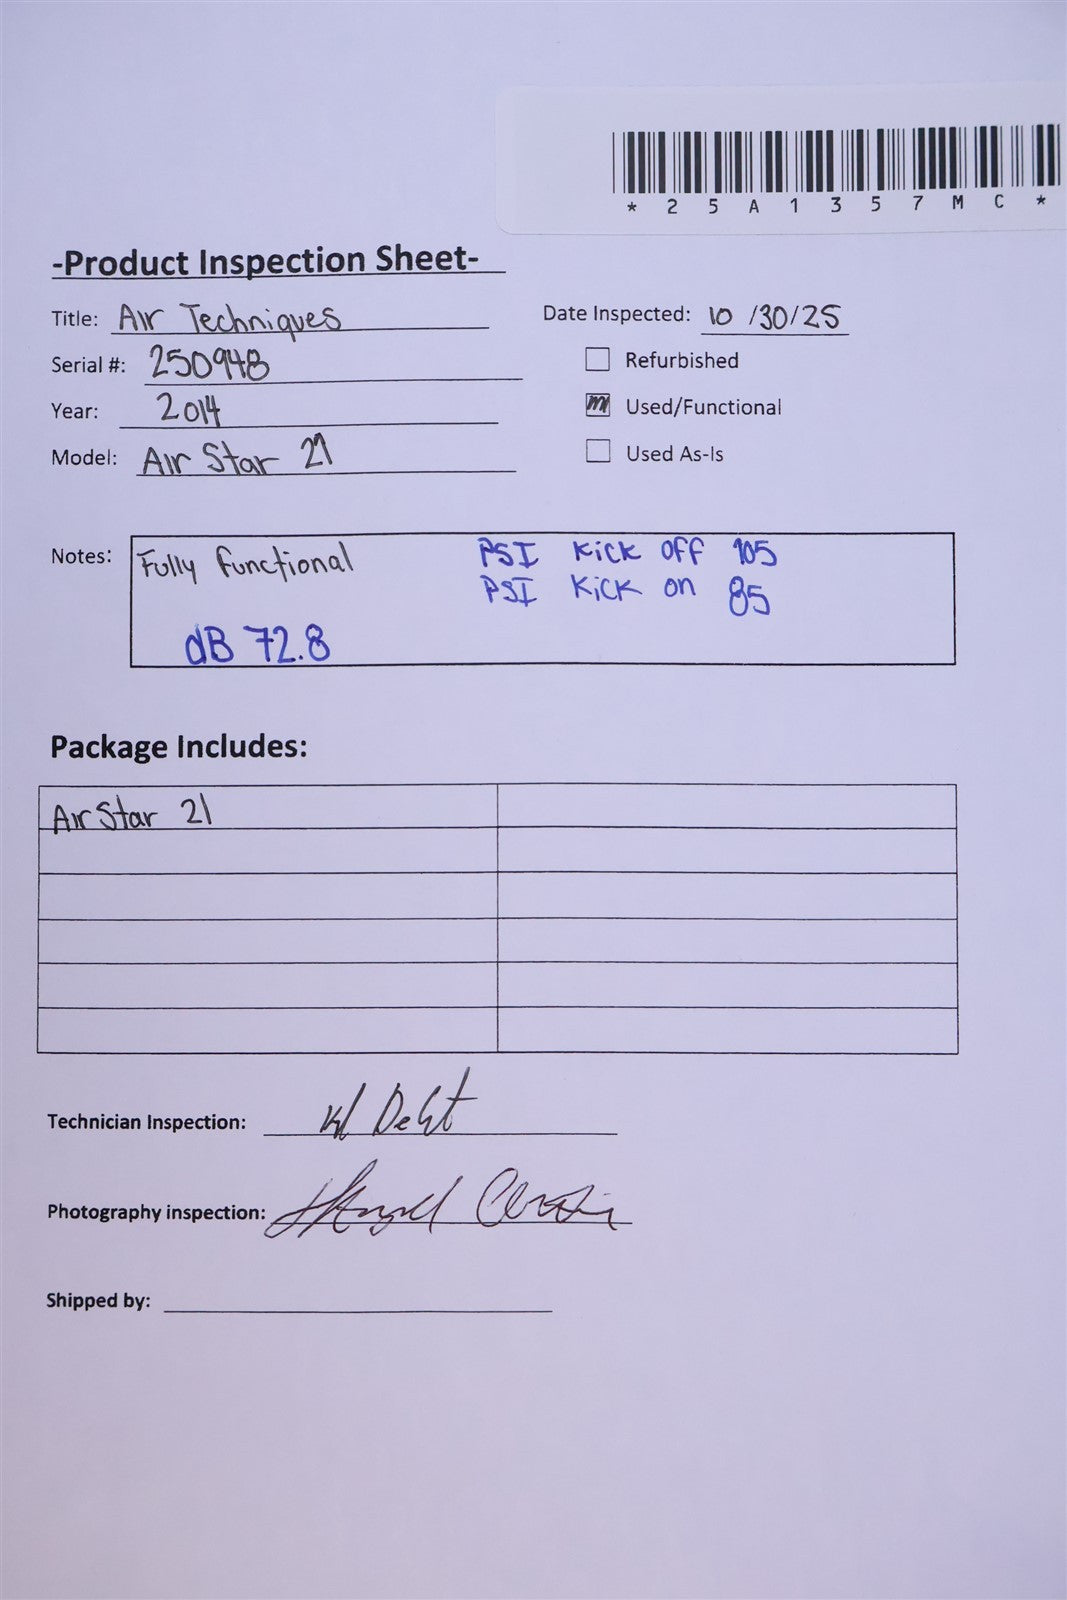 * 2 5 A 1 3 5 7 M C *
-Product Inspection Sheet-
Title: Air Techniques
Date Inspected: 10/30/25
Serial #: 250948
Refurbished
Year: 2014
Used/Functional
Model: Air Star 21
Used As-Is
Notes: Fully functional
PSI Kick off 105
PSI Kick on 85
dB 72.8
Package Includes:
Air Star 21
Technician Inspection:
Photography inspection:
Shipped by: